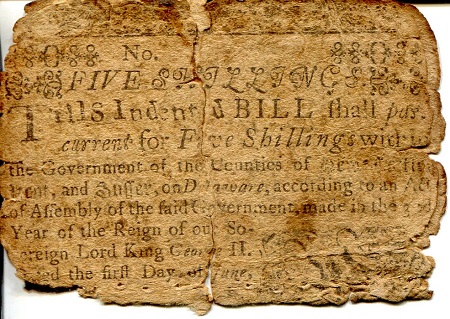 No.
FIVE SHILLINGS.
THIS Indented BILL shall pass
current for Five Shillings within
the Government of the Counties of
Kent, and Sussex, on Delaware, according to an Act
of Assembly of the said Government, made in the
Year of the Reign of our So-
vereign Lord King George II.
the first Day of June,